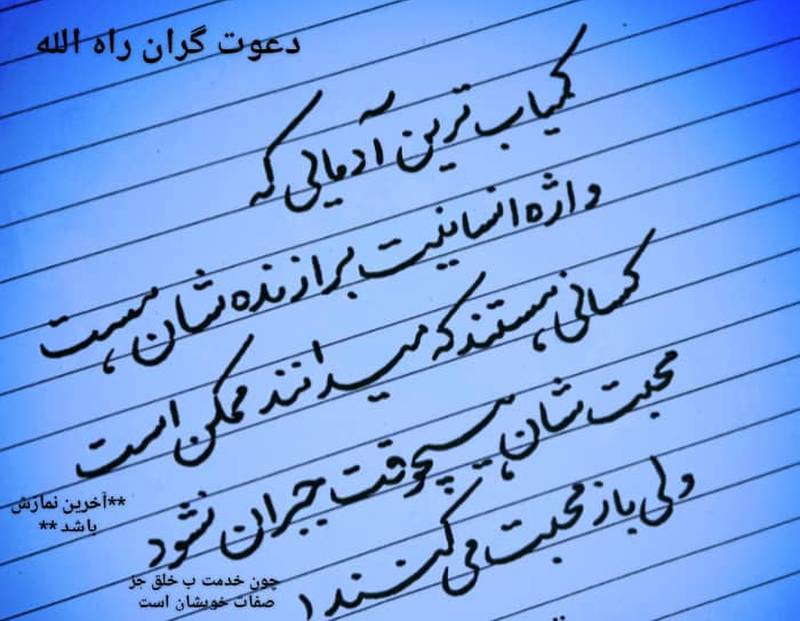 دعوت گران راه الله
کمیاب ترین آدمایی که
واژه انسانیت برازنده شان هست
کسانی هستند که میدانند ممکن است
محبت شان هیچوقت جبران نشود
ولی باز محبت می کنند
**آخرین نمازش
باشد **
چون خدمت ب خلق جز
صفات خویشان است